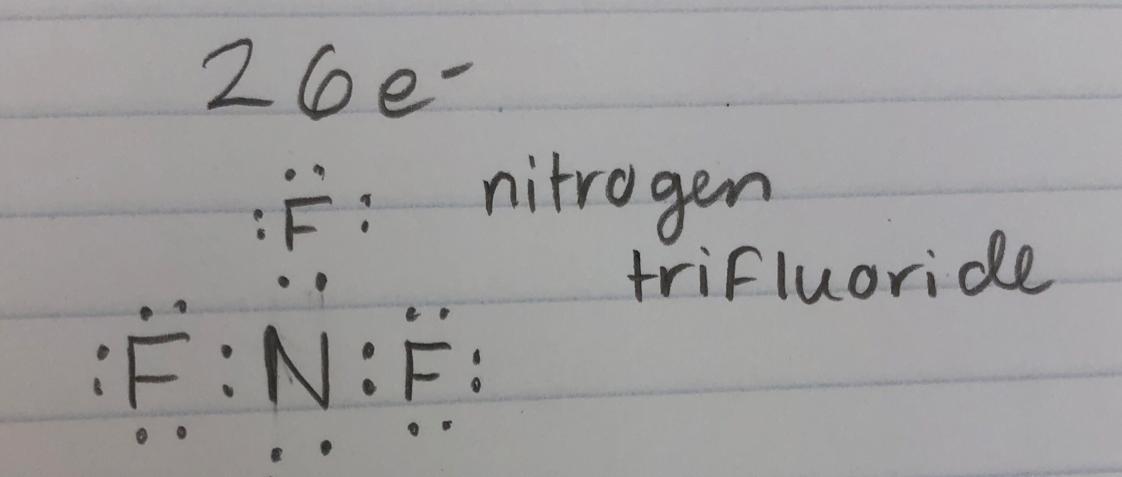 26e-
:F: nitrogen
trifluoride
:F:N:F: